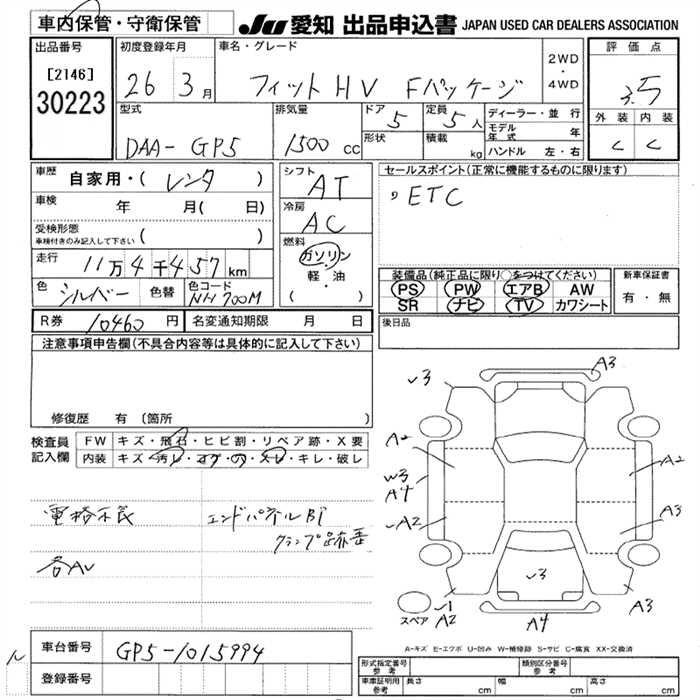 車内保管・守衛保管
JU 愛知 出品申込書 JAPAN USED CAR DEALERS ASSOCIATION
出品番号
[2146]
30223
初度登録年月
26 3 月
車名・グレード
フィット HV Fパッケージ
2WD
・
4WD
評価点
3.5
外装 内装
C C
型式
DAA- GP5
排気量
1500 cc
ドア 5
形状
定員 5 人
積載 kg
ディーラー・並行
モデル年式 年
ハンドル 左・右
車歴
自家用・( レンタ )
車検 年 月( 日)
受検形態
車検付きのみ記入して下さい ( )
走行 11万4千457km
色 シルバー 色替 色コード NH700M
シフト
AT
冷房
AC
燃料
ガソリン
・
軽・油
( )
セールスポイント(正常に機能するものに限ります)
ETC
装備品(純正品に限り○をつけてください)
PS PW エアB AW
SR ナビ TV カワシート
新車保証書
有・無
R券 10460 円 名変通知期限 月 日
後日品
注意事項申告欄(不具合内容等は具体的に記入して下さい)
修復歴 有(箇所 )
検査員
記入欄
FW キズ・飛石・ヒビ割・リペア跡・X要
内装 キズ・汚レ・コゲ・穴・スレ・キレ・破レ
電格不良
エンドパネルBT
クランプ跡歪
各AU
A3
✓3
A2
A2
W3
A4
✓A2
A3
✓3
✓1
A2
A4
A3
スペア
A-キズ E-エクボ U-凹み W-補修跡 S-サビ C-腐食 XX-交換済
車台番号 GP5-1015994
登録番号
型式指定番号
参考
類別区分番号
参考
車庫証明用
参考
長さ cm 幅 cm 高さ cm